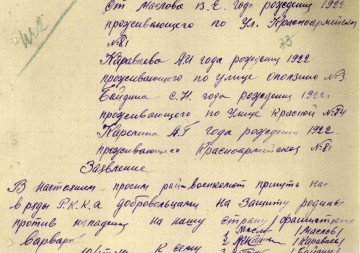 от Маслова В.Е. года рождения 1922
проживающего по Ул. Красноармейск
№81
33
Караваева А.И года рождения 1922
проживающего по улице №3
Байдина С.Н. года рождения 1922г.
проживающего по Улице Красной №74
Карелина А.Г года рождения 1922.
проживающего Красноармейская №81
Заявление
В настоящем просим рай-военкомат принять нас
в ряды Р.К.К.А добровольцами на Защиту родины
против нападения на нашу страну фашистских
варваров
К сему
1. Масло /Маслов/
2. /Караваев/
3. /Байдин/